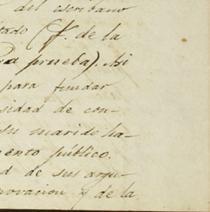 del escribano
tado (f. de la
prueba). Así
para fundar
sidad de con-
su marido ha-
mento público.
d de sus argu-
novacion y de la